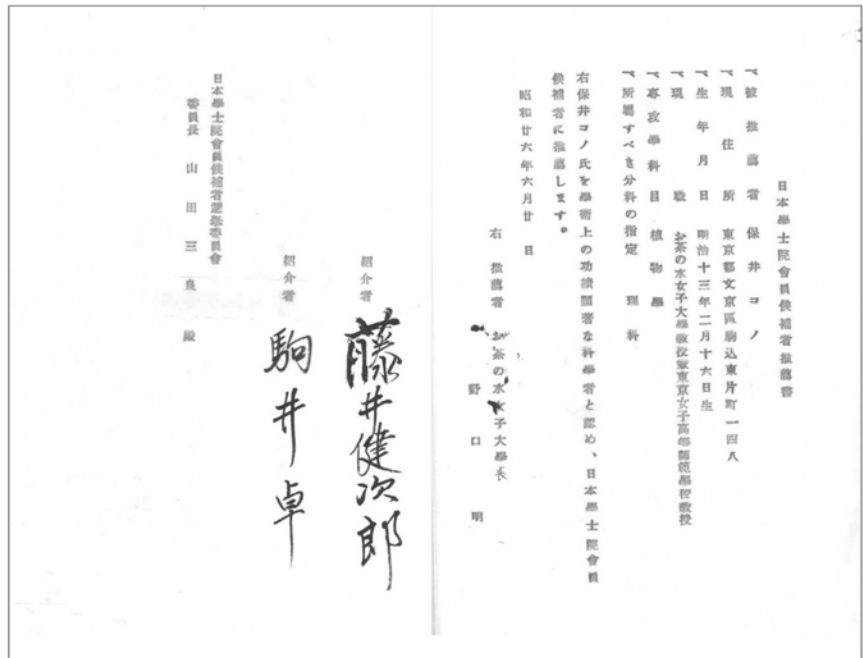 日本學士院會員候補者推薦書
一、被推薦者 保井コノ
一、現住所 東京都文京區駒込東片町一四八
一、生年月日 明治十三年二月十六日生
一、現職 お茶の水女子大學教授兼東京女子高等師範學校教授
一、專攻學科目 植物學
一、所屬すべき分科の指定 理科
右保井コノ氏を學術上の功績顯著な科學者と認め、日本學士院會員
候補者に推薦します。
昭和廿六年六月廿日
右推薦者 お茶の水女子大學長
野口明
紹介者 藤井健次郎
紹介者 駒井卓
日本學士院會員候補者選擧委員會
委員長 山田三良殿